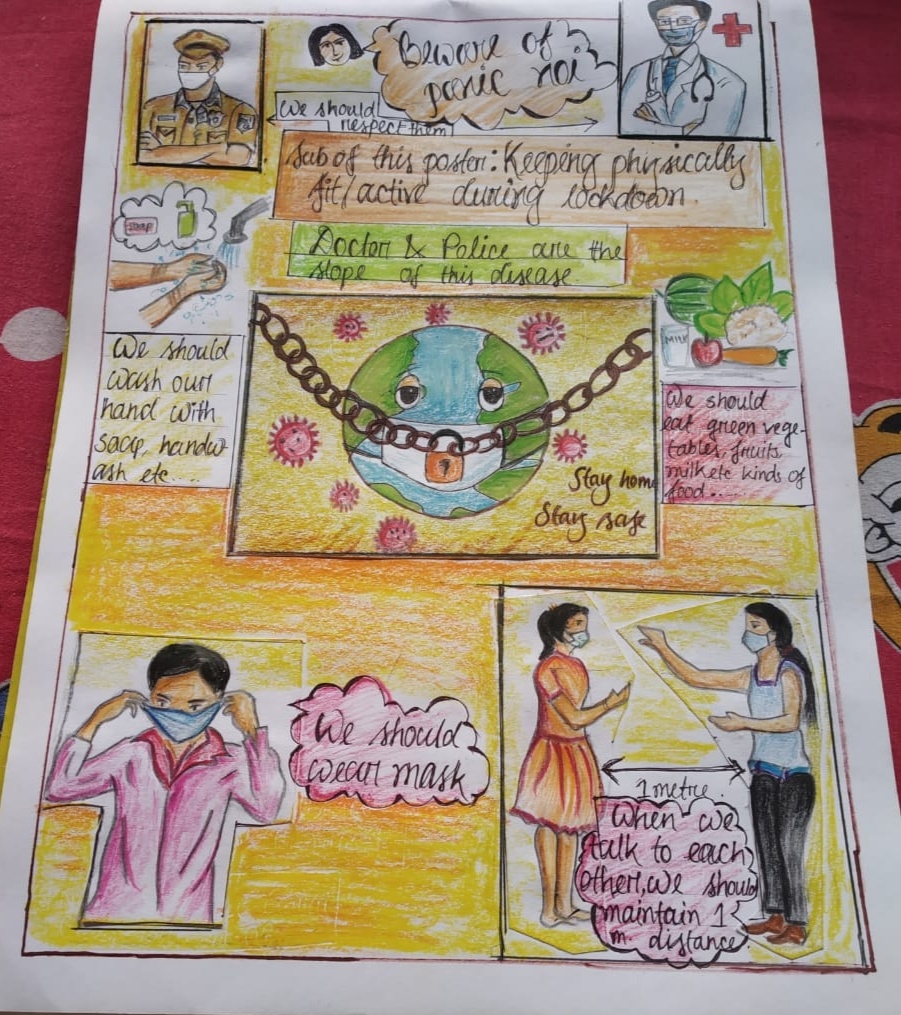 Beware of
panic noi
We should
respect them
Sub of this poster: Keeping physically
fit/active during lockdown.
Doctor & Police are the
slope of this disease
SOAP
We should
wash our
hand with
soap, handw-
ash etc....
MILK
We should
eat green vege-
tables, fruits,
milk etc kinds of
food.....
Stay home
Stay safe
We should
wear mask
1 metre.
When we
talk to each
other, we should
maintain 1
m. distance.